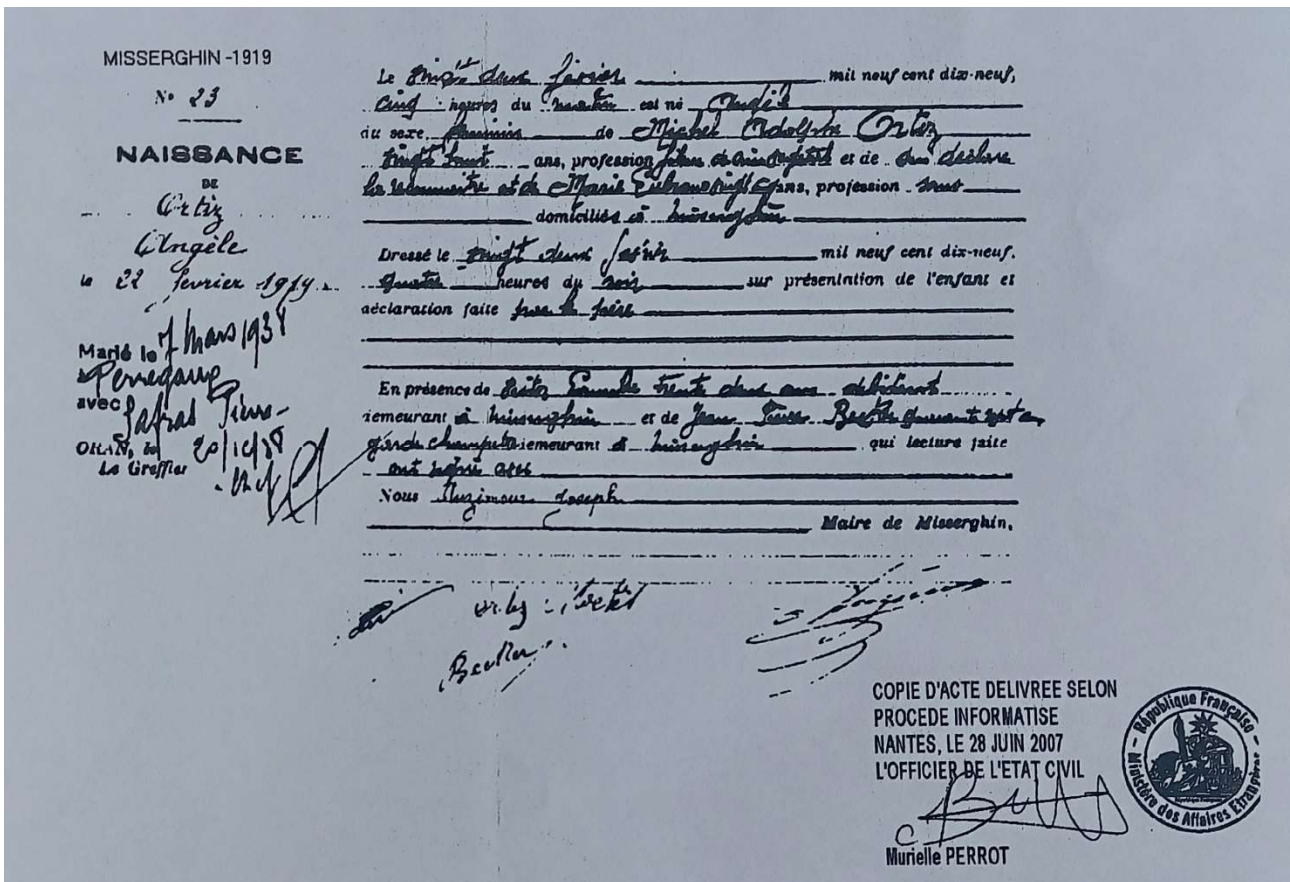 MISSERGHIN - 1919
N° 23
NAISSANCE
DE
Ortiz
Angèle
le 22 fevrier 1919
Marié le 7 Mars 1938
à Perregaux
avec Safras Pierre
ORAN, le 20/10/38
Le Greffier
Le vingt deux février mil neuf cent dix-neuf,
cinq heures du matin est né Angèle
du sexe féminin de Michel Adolphe Ortiz
vingt huit ans, profession et de declare
la reconnaitre et de Marie ans, profession sans
domiciliés à Misserghin
Dressé le vingt deux février mil neuf cent dix-neuf.
quatre heures du soir sur présentation de l'enfant et
déclaration faite par le père
En présence de trente deux ans débitant
demeurant à Misserghin et de Jean quarante sept ans
garde champetre demeurant à Misserghin qui lecture faite
ont signé avec
Nous Joseph
Maire de Misserghin.
COPIE D'ACTE DELIVREE SELON
PROCEDE INFORMATISE
NANTES, LE 28 JUIN 2007
L'OFFICIER DE L'ETAT CIVIL
Murielle PERROT
République Française
Ministère des Affaires Etrangères